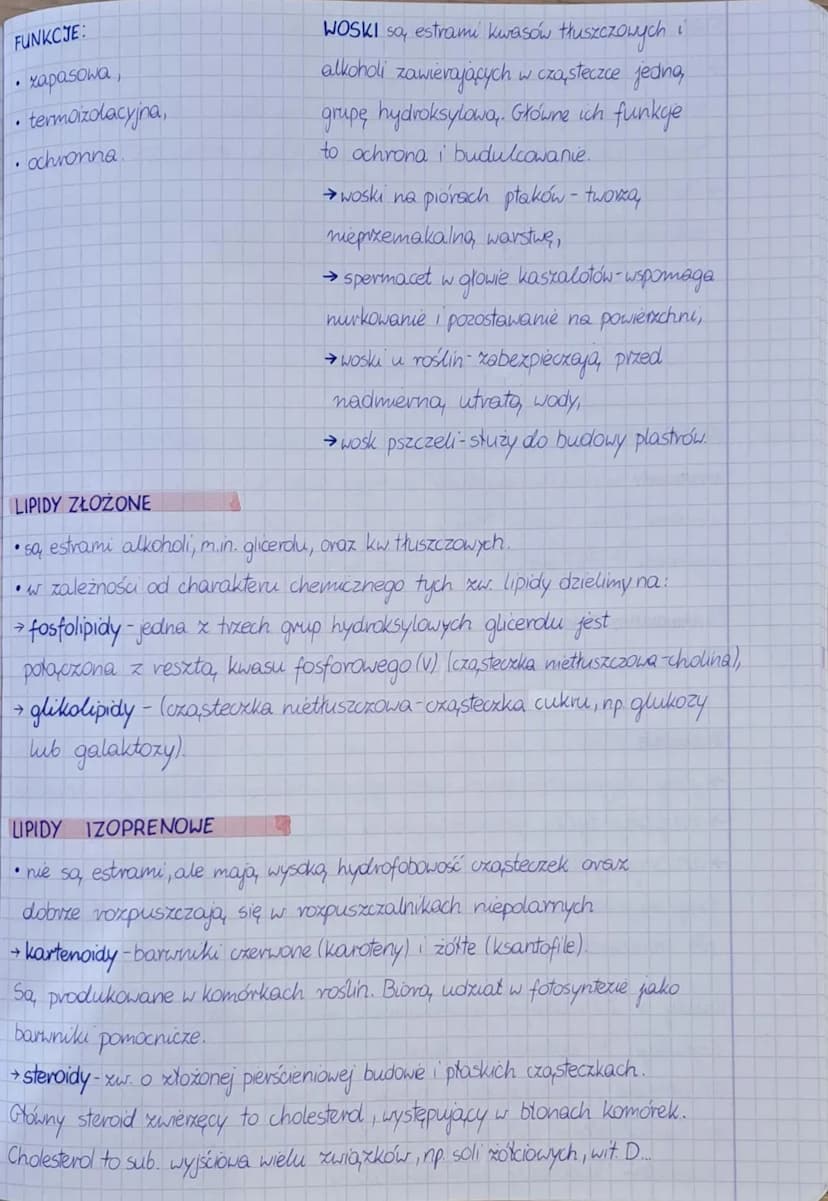 FUNKCJE:
• zapasowa,
• termoizolacyjna,
• ochronna.
WOSKI są estrami kwasów tłuszczowych i
alkoholi zawierających w cząsteczce jedną
grupę hydroksylową. Główne ich funkcje
to ochrona i budulcowanie.
→ woski na piórach ptaków - tworzą
nieprzemakalną warstwę,
→ spermacet w głowie kaszalotów - wspomaga
nurkowanie i pozostawanie na powierzchni,
→ woski u roślin - zabezpieczają przed
nadmierną utratą wody,
→ wosk pszczeli - służy do budowy plastrów.
LIPIDY ZŁOŻONE
• są estrami alkoholi, m.in. glicerolu, oraz kw. tłuszczowych.
• w zależności od charakteru chemicznego tych zw. lipidy dzielimy na:
→ fosfolipidy - jedna z trzech grup hydroksylowych glicerolu jest
połączona z resztą kwasu fosforowego (V) (cząsteczka nietłuszczowa - cholina),
→ glikolipidy - (cząsteczka nietłuszczowa - cząsteczka cukru, np. glukozy
lub galaktozy).
LIPIDY IZOPRENOWE
• nie są estrami, ale mają wysoką hydrofobowość cząsteczek oraz
dobrze rozpuszczają się w rozpuszczalnikach niepolarnych
→ kartenoidy - barwniki czerwone (karoteny) i żółte (ksantofile).
Są produkowane w komórkach roślin. Biorą udział w fotosyntezie jako
barwniki pomocnicze.
→ steroidy - zw. o złożonej pierścieniowej budowie i płaskich cząsteczkach.
Główny steroid zwierzęcy to cholesterol, występujący w błonach komórek.
Cholesterol to sub. wyjściowa wielu związków, np. soli żółciowych, wit. D...